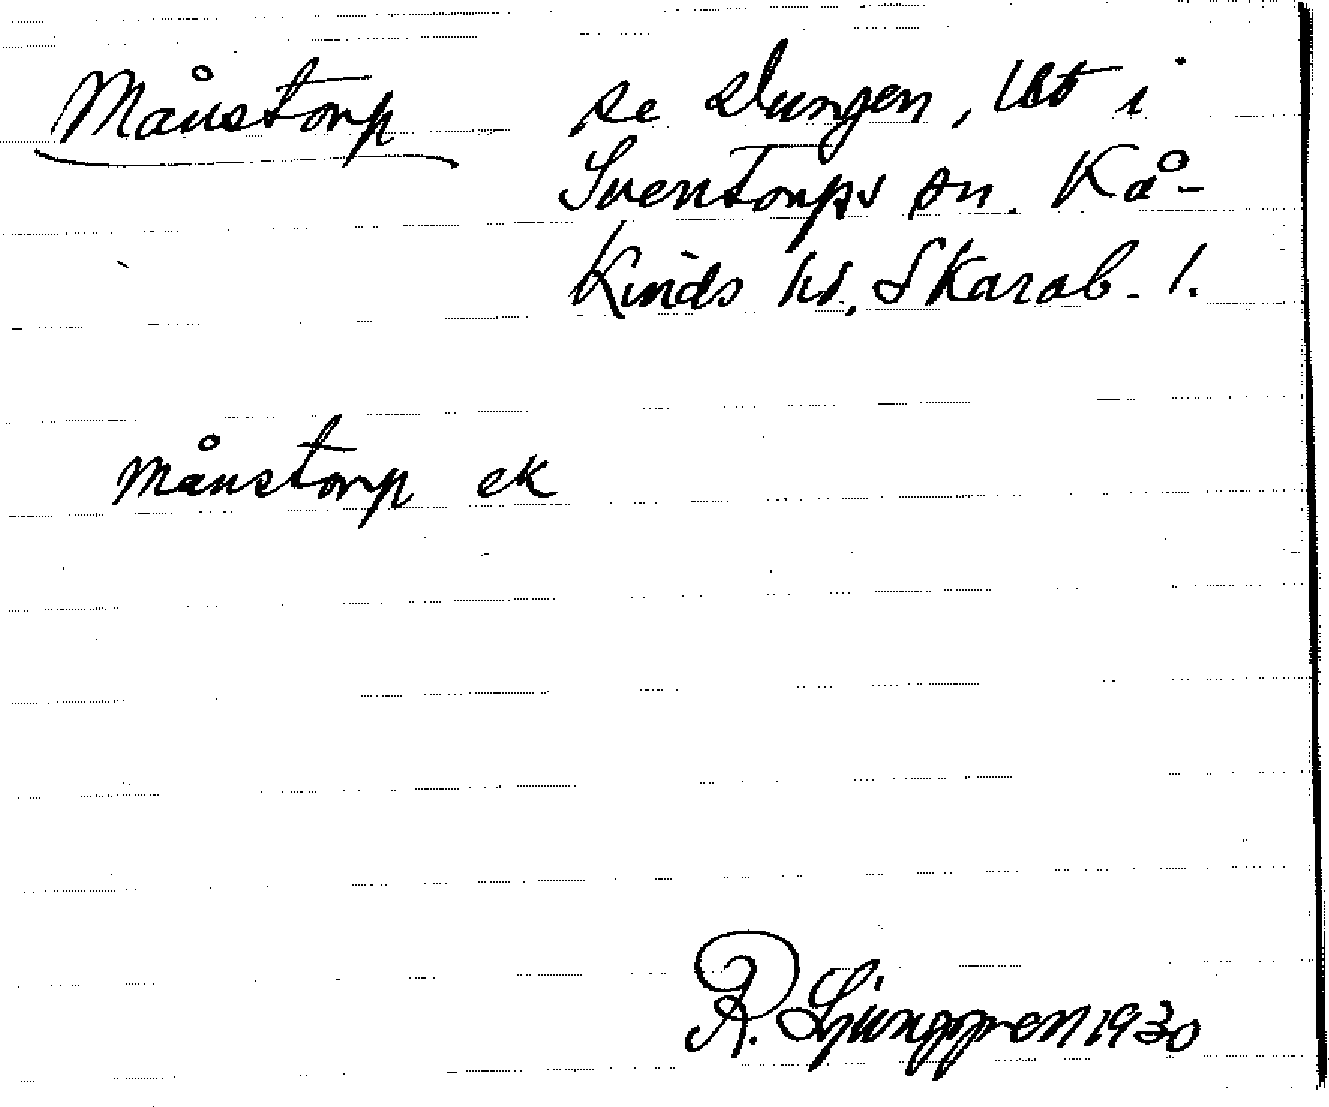 Månstorp se Dungen, lht i
Sventorps sn. Kå-
kinds hd, Skarab. l.
Månstorp ek
R. Ljunggren 1930